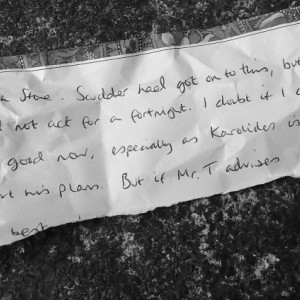 Stone. Scudder had got on to this, but
not act for a fortnight. I doubt if I c
good now, especially as Karolides is
his plans. But if Mr. T advises
best